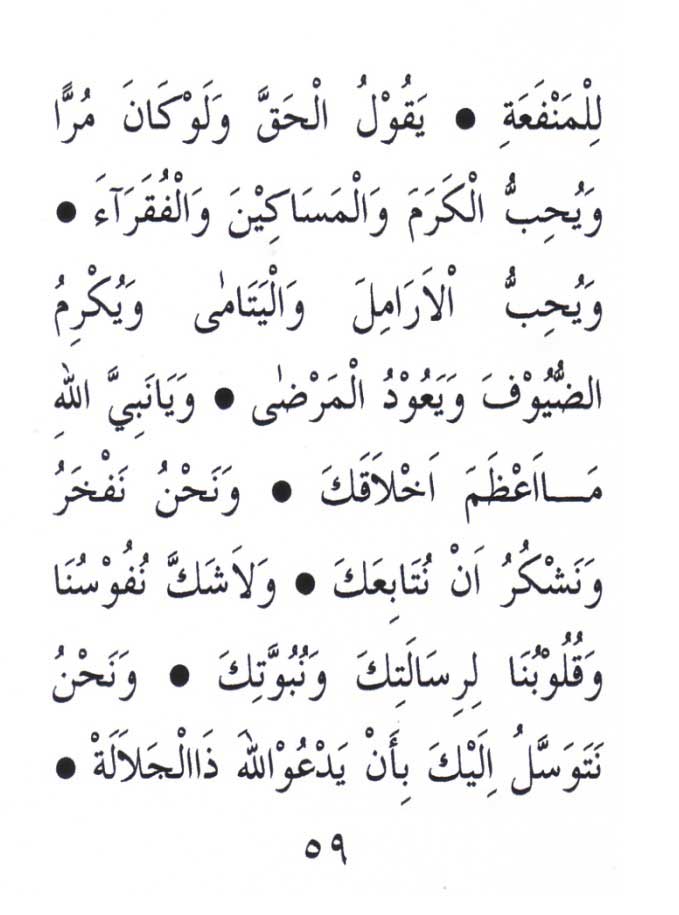 لِلْمَنْفَعَةِ ● يَقُوْلُ الْحَقَّ وَلَوْكَانَ مُرًّا
وَيُحِبُّ الْكَرَمَ وَالْمَسَاكِيْنَ وَالْفُقَرَآءَ ●
وَيُحِبُّ اْلاَرَامِلَ وَالْيَتَامٰى وَيُكْرِمُ
الضُّيُوْفَ وَيَعُوْدُ الْمَرْضٰى ● وَيَانَبِيَّ اللهِ
مَـــااَعْظَمَ اَخْلَاقَكَ ● وَنَحْنُ نَفْخَرُ
وَنَشْكُرُ اَنْ نُتَابِعَكَ ● وَلاَشَكَّ نُفُوْسُنَا
وَقُلُوْبُنَا لِرِسَالَتِكَ وَنُبُوَّتِكَ ● وَنَحْنُ
نَتَوَسَّلُ اِلَيْكَ بِأَنْ يَدْعُوْاللهَ ذَاالْجَلاَلَةْ ●
٥٩